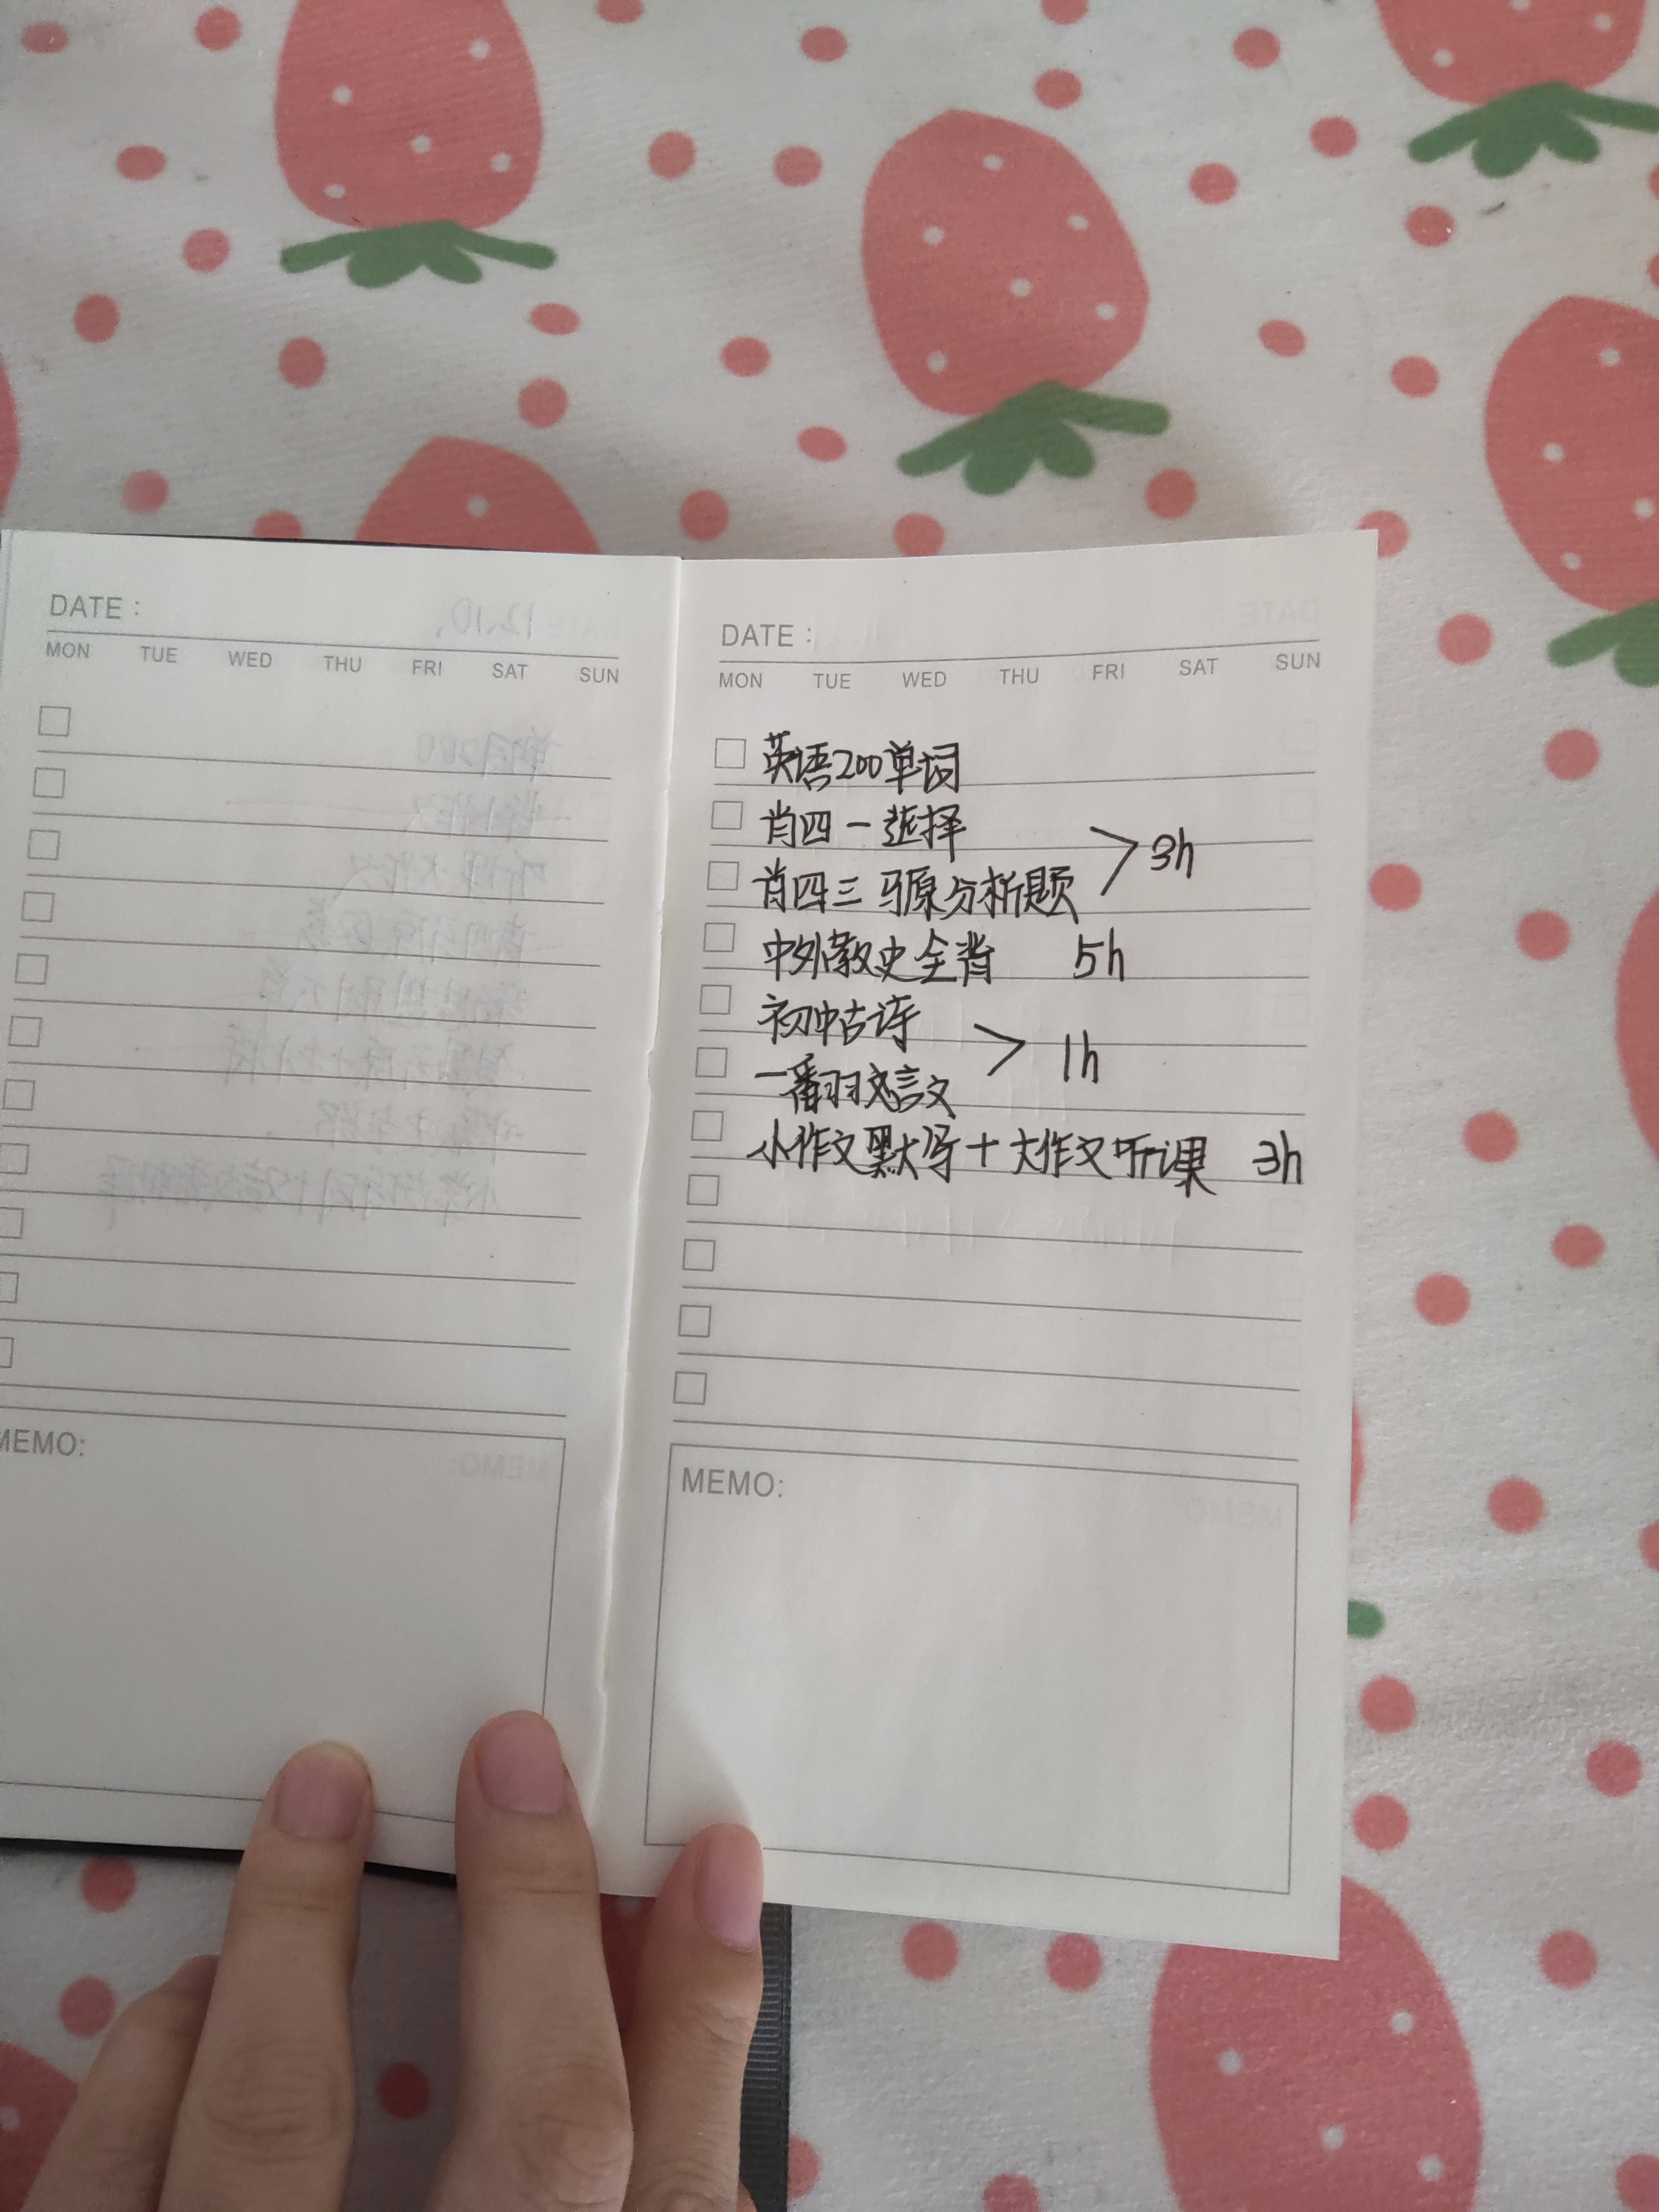 DATE :
MON TUE WED THU FRI SAT SUN
MEMO:
DATE :
MON TUE WED THU FRI SAT SUN
英语200单词
肖四一选择
肖四三 马原分析题
3h
中外教史全背 5h
初中古诗
一番羽文言文
1h
小作文默写+大作文听课 3h
MEMO: